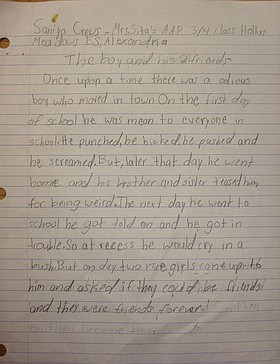 Saniya Crews - Mrs. Sita's AAP 3/4 class Hollin
Meadows ES, Alexandria
The boy and his 2 friends
Once upon a time there was a odious
boy who moved in town. On the first day
of school he was mean to everyone in
school. He punched, he kicked, he pushed and
he screamed. But, later that day he went
home and his brother and sister teased him
for being weird. The next day he went to
school he got told on and he got in
trouble. So at recess he would cry in a
bush. But on day two nice girls came up to
him and asked if they could be friends
and they were friends forever!